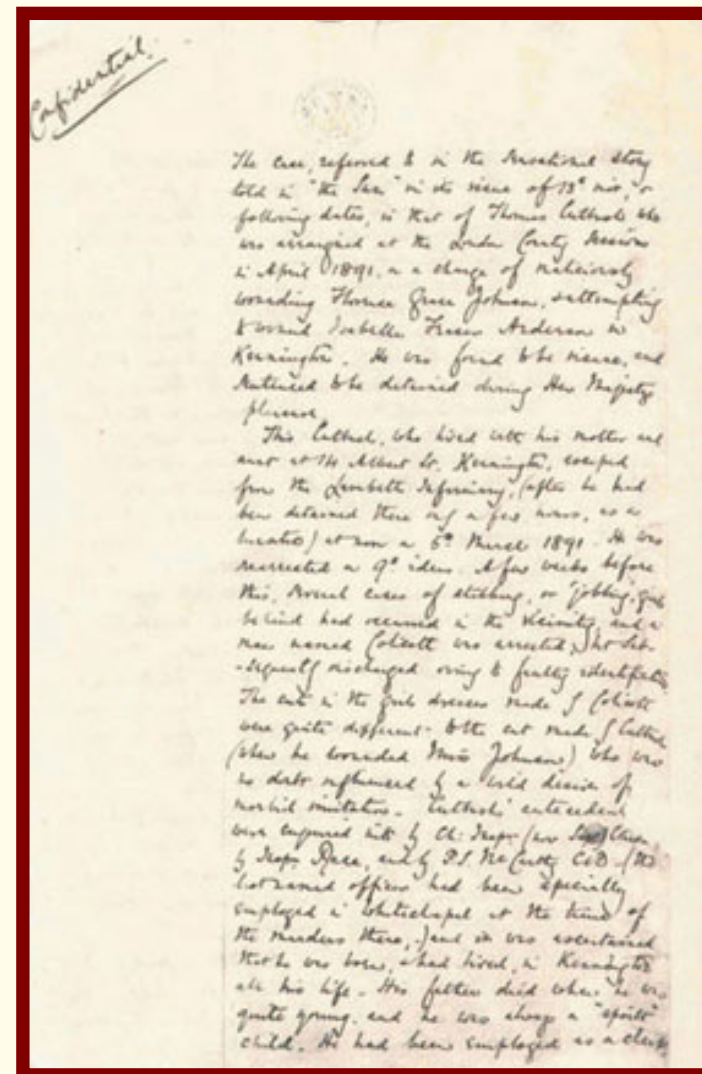 Confidential.
The case, referred to in the sensational story
told in "the Sun" in its issue of 13th inst, &
following dates, is that of Thomas Cutbush who
was arraigned at the London County Sessions
in April 1891, on a charge of maliciously
wounding Florence Grace Johnson, & attempting
to wound Isabella Fraser Anderson in
Kennington. He was found to be insane, and
sentenced to be detained during Her Majesty's
pleasure.
This Cutbush, who lived with his mother and
aunt at 14 Albert St. Kennington, escaped
from the Lambeth Infirmary, (after he had
been detained there only a few hours, as a
lunatic) at noon on 5th March 1891. He was
rearrested on 9th idem. A few weeks before
this, several cases of stabbing, or "jobbing", girls
behind had occurred in the vicinity, and a
man named Colicott was arrested, but sub-
-sequently discharged owing to faulty identification.
The cuts in the girls dresses made by Colicott
were quite different to the cut made by Cutbush
(when he wounded Miss Johnson) who was
no doubt influenced by a wild desire of
morbid imitation. Cutbush's antecedents
were enquired into by Ch: Inspr (now Supt) Chisholm
by Inspr Race, and by P.S. McCarthy C.I.D. - (the
last named officer had been specially
employed in Whitechapel at the time of
the murders there,) and it was ascertained
that he was born, & had lived, in Kennington
all his life. His father died when he was
quite young, and he was always a "spoilt"
child. He had been employed as a clerk